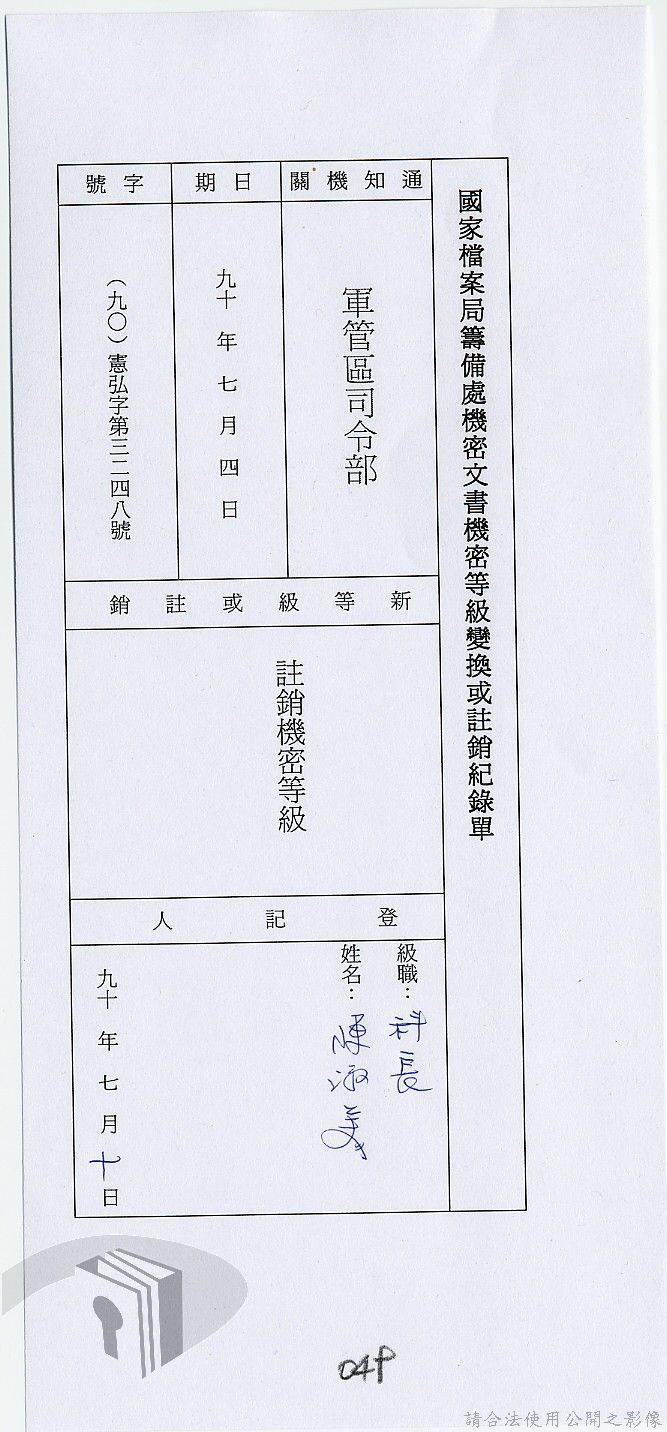 國家檔案局籌備處機密文書機密等級變換或註銷紀錄單
通知機關
軍管區司令部
日期
九十年七月四日
字號
（九〇）憲弘字第三二四八號
新等級或註銷
註銷機密等級
登記人
級職：科長
姓名：陳淑美
九十年七月十日
049
請合法使用公開之影像